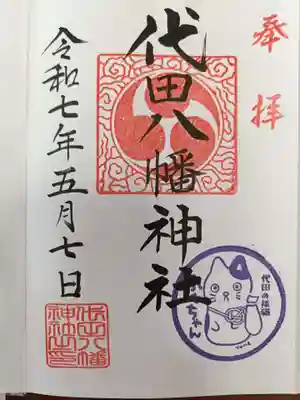 奉拝
代田八幡神社
令和七年五月七日
代田八幡
神社之印
代田の招福猫
ちゃん